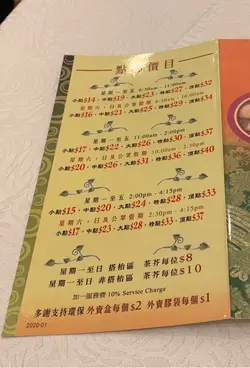 點心價目
星期一至五 8:30am - 11:00am
小點$14、中點$19、大點$23、特點$27、頂點$32
星期六，日及公眾假期
小點$16、中點$21、大點$25、特點$29、頂點$34
星期一至五 11:00am - 2:00pm
小點$17、中點$22、大點$26、特點$30、頂點$37
星期六，日及公眾假期
小點$20、中點$26、大點$31、特點$36、頂點$40
星期一至五 2:00pm - 4:15pm
小點$15、中點$20、大點$24、特點$28、頂點$33
星期六，日及公眾假期 2:30pm - 4:15pm
小點$17、中點$23、大點$28、特點$33、頂點$37
星期一至日 搭枱區 茶芥每位$8
星期一至日 非搭枱區 茶芥每位$10
加一服務費 10% Service Charge
多謝支持環保 外賣盒每個$2 外賣膠袋每個$1
2020-01